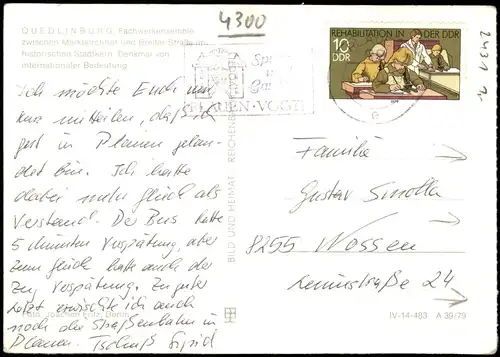 QUEDLINBURG, Fachwerkensemble
zwischen Marktkirchhof und Breiter Straße im
historischen Stadtkern. Denkmal von
internationaler Bedeutung
4300
PLAUEN · VOGTL
REHABILITATION IN DER DDR
10
DDR
2431
Ich möchte Euch nur
kurz mitteilen, daß ich
gut in Plauen gelan-
det bin. Ich hatte
dabei mehr Glück als
Verstand. Der Bus hatte
5 Minuten Verspätung, aber
zum Glück hatte auch der
Zug Verspätung. Zu guter
Letzt erwischte ich auch
noch die Straßenbahn in
Plauen. Tschüß Sigrid
Foto: Joachim Fritz, Berlin
BILD UND HEIMAT REICHENBACH
Familie
Gustav
8255 Nossen
Leninstraße 24
IV-14-483 A 39/79